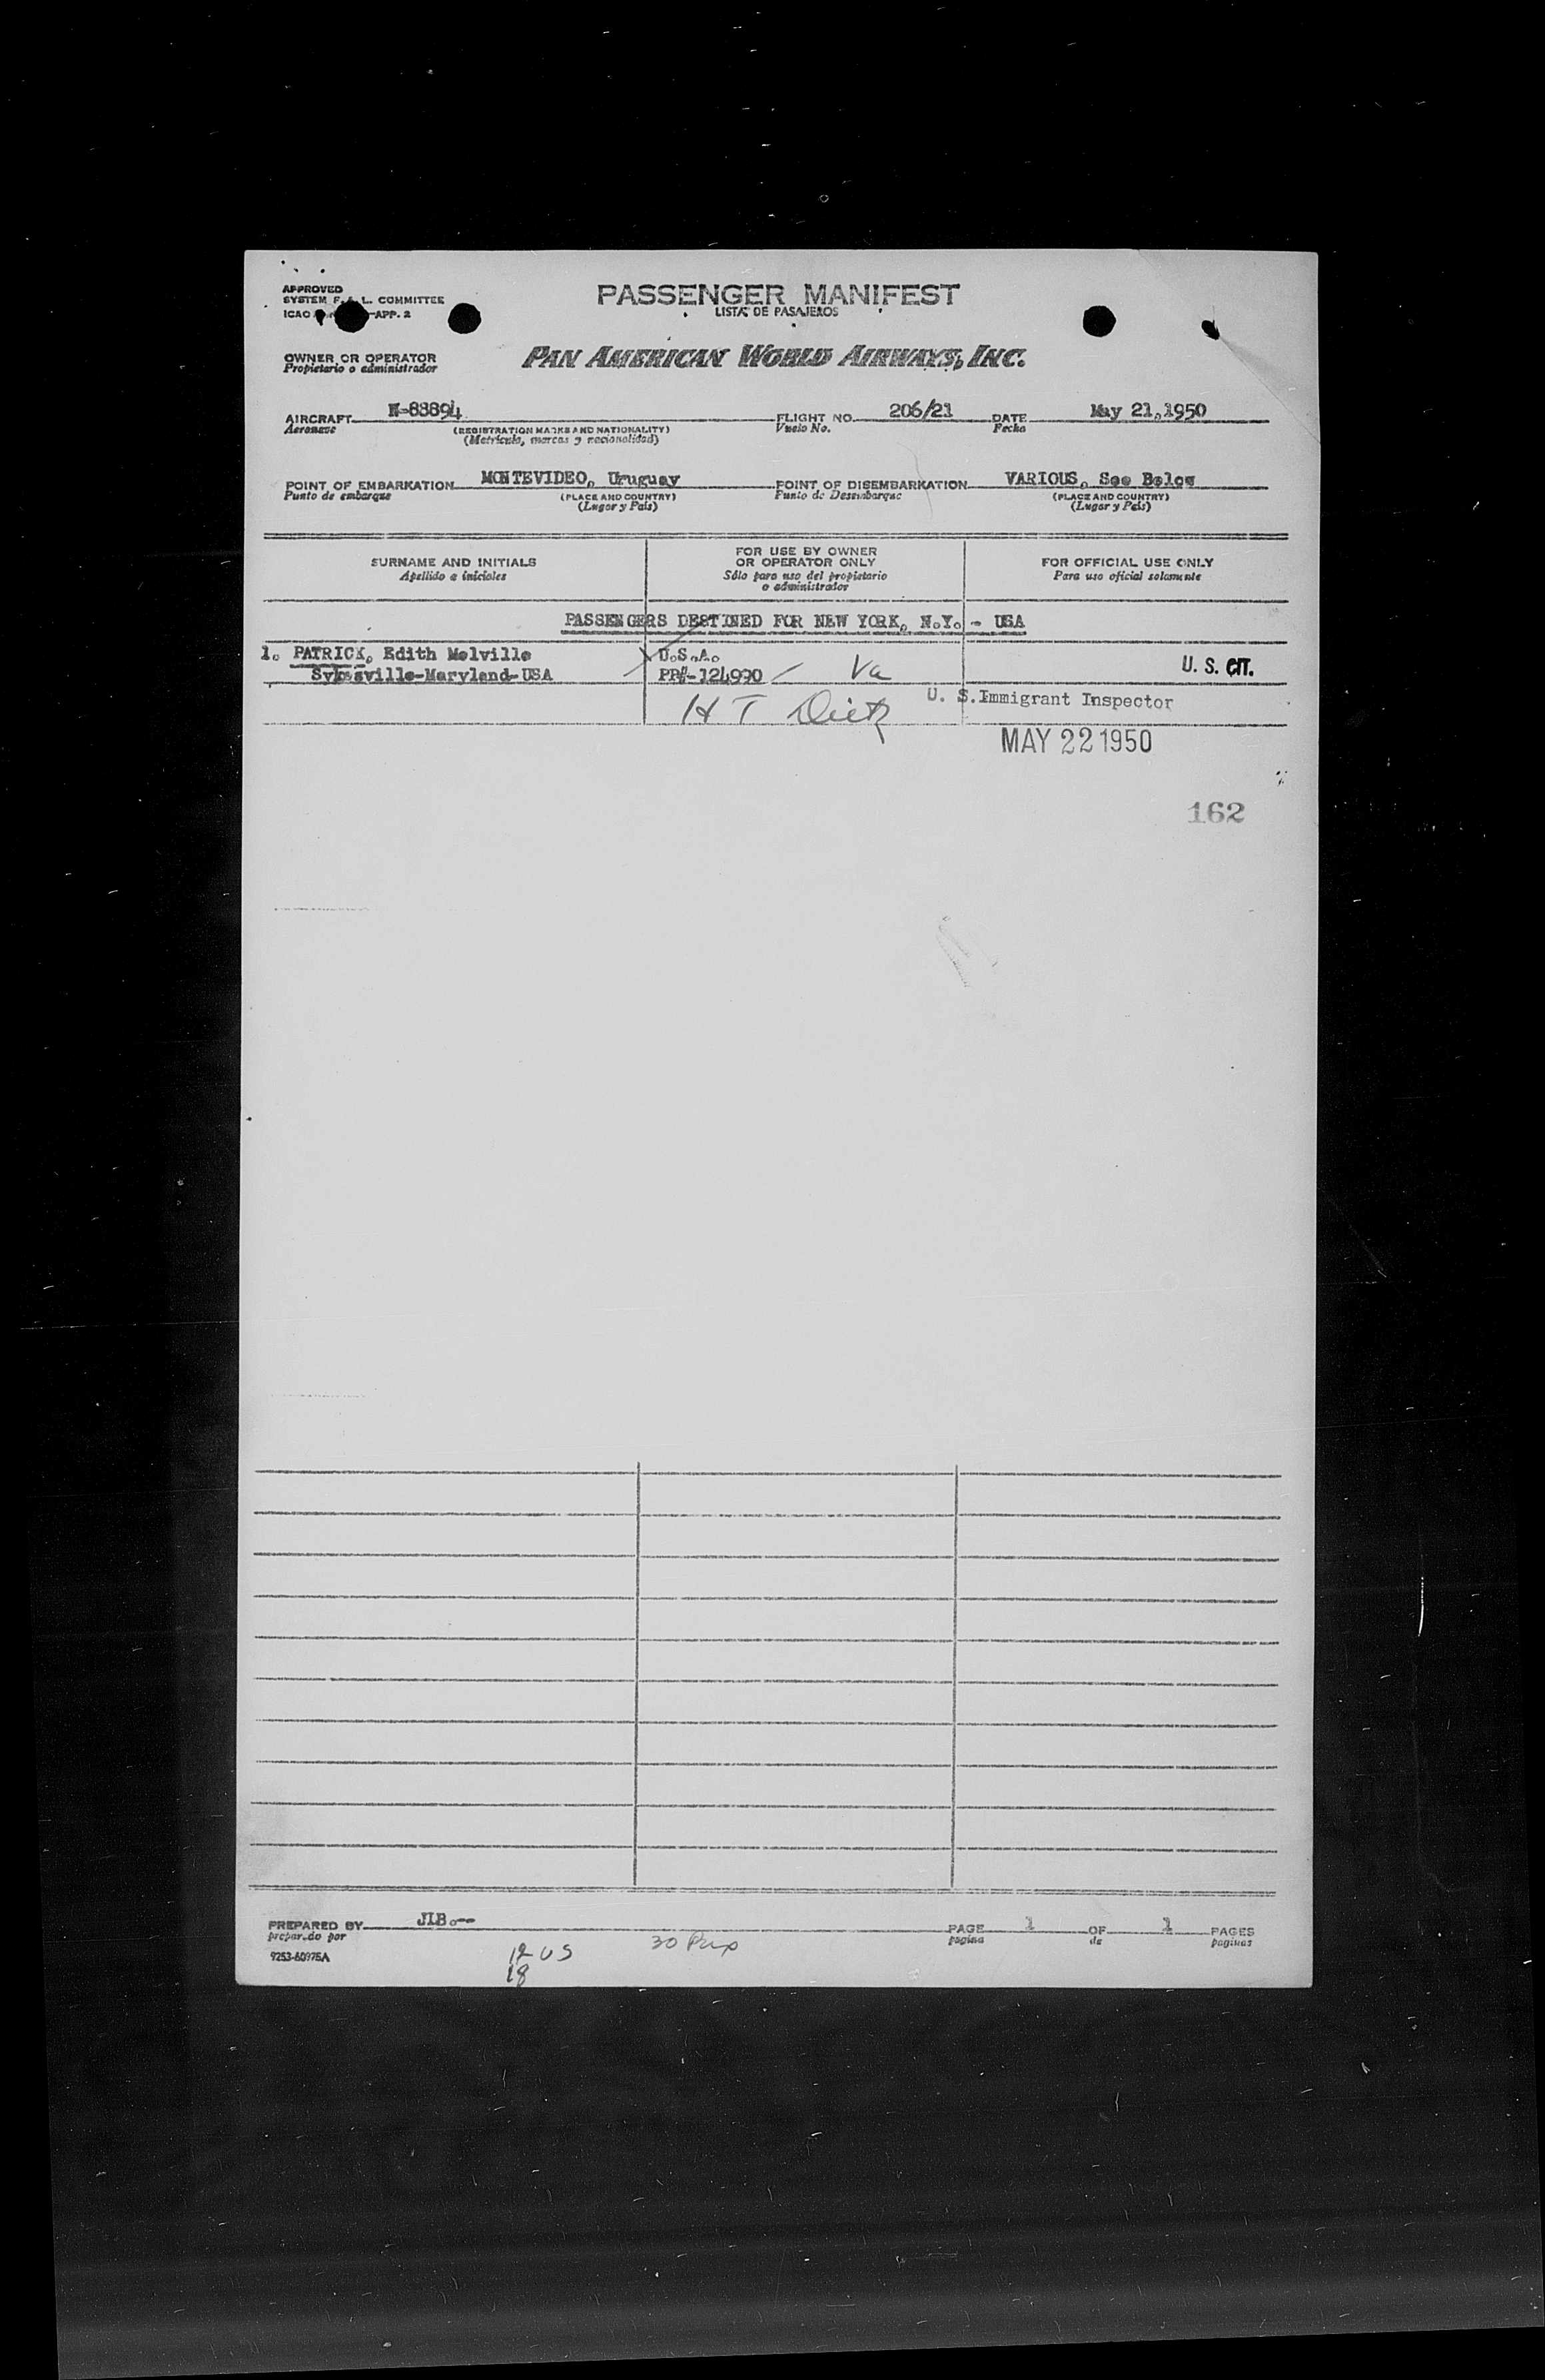 APPROVED
SYSTEM F. & L. COMMITTEE
ICAO -APP. 2
PASSENGER MANIFEST
LISTA DE PASAJEROS
OWNER OR OPERATOR
Propietario o administrador
PAN AMERICAN WORLD AIRWAYS, INC.
AIRCRAFT N-88894 FLIGHT NO. 206/21 DATE May 21,1950
Aeronave (REGISTRATION MARKS AND NATIONALITY) Vuelo No. Fecha
(Matrícula, marcas y nacionalidad)
POINT OF EMBARKATION MONTEVIDEO, Uruguay POINT OF DISEMBARKATION VARIOUS, See Below
Punto de embarque (PLACE AND COUNTRY) Punto de Desembarque (PLACE AND COUNTRY)
(Lugar y País) (Lugar y País)
SURNAME AND INITIALS FOR USE BY OWNER OR OPERATOR ONLY FOR OFFICIAL USE ONLY
Apellido e iniciales Sólo para uso del propietario o administrador Para uso oficial solamente
PASSENGERS DESTINED FOR NEW YORK, N.Y. - USA
1. PATRICK, Edith Melville U.S.A.
Sykesville-Maryland-USA PP#-124990 / Va U. S. CIT.
H T Dietz U. S. Immigrant Inspector
MAY 22 1950
162
PREPARED BY JLB.-- PAGE 1 OF 1 PAGES
preparado por pagina de paginas
9253-60975A 12 US 30 Pax
18